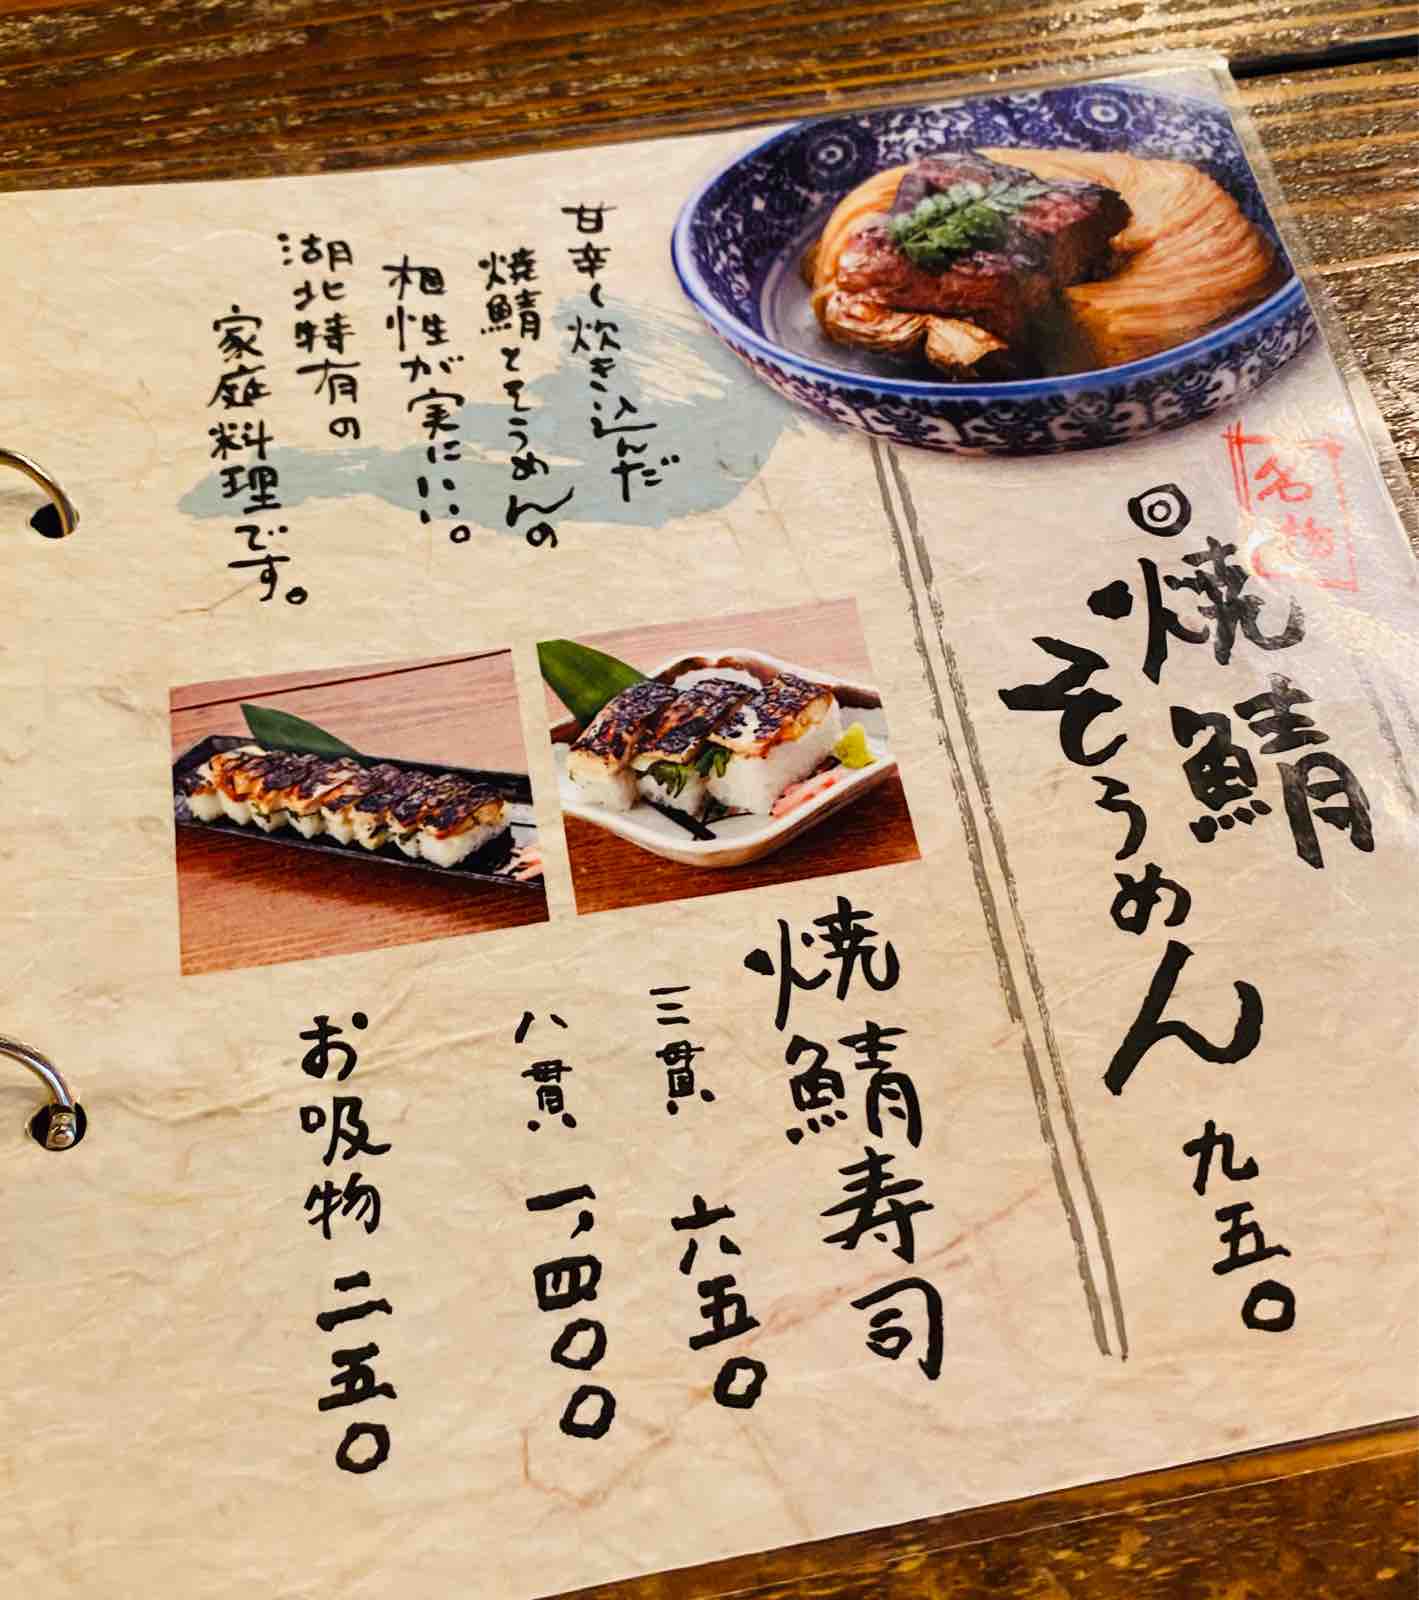 名物
◎焼鯖
そうめん 九五〇
甘辛く炊き込んだ
焼鯖とそうめんの
相性が実にいい。
湖北特有の
家庭料理です。
焼鯖寿司
三貫 六五〇
八貫 一,四〇〇
お吸物 二五〇